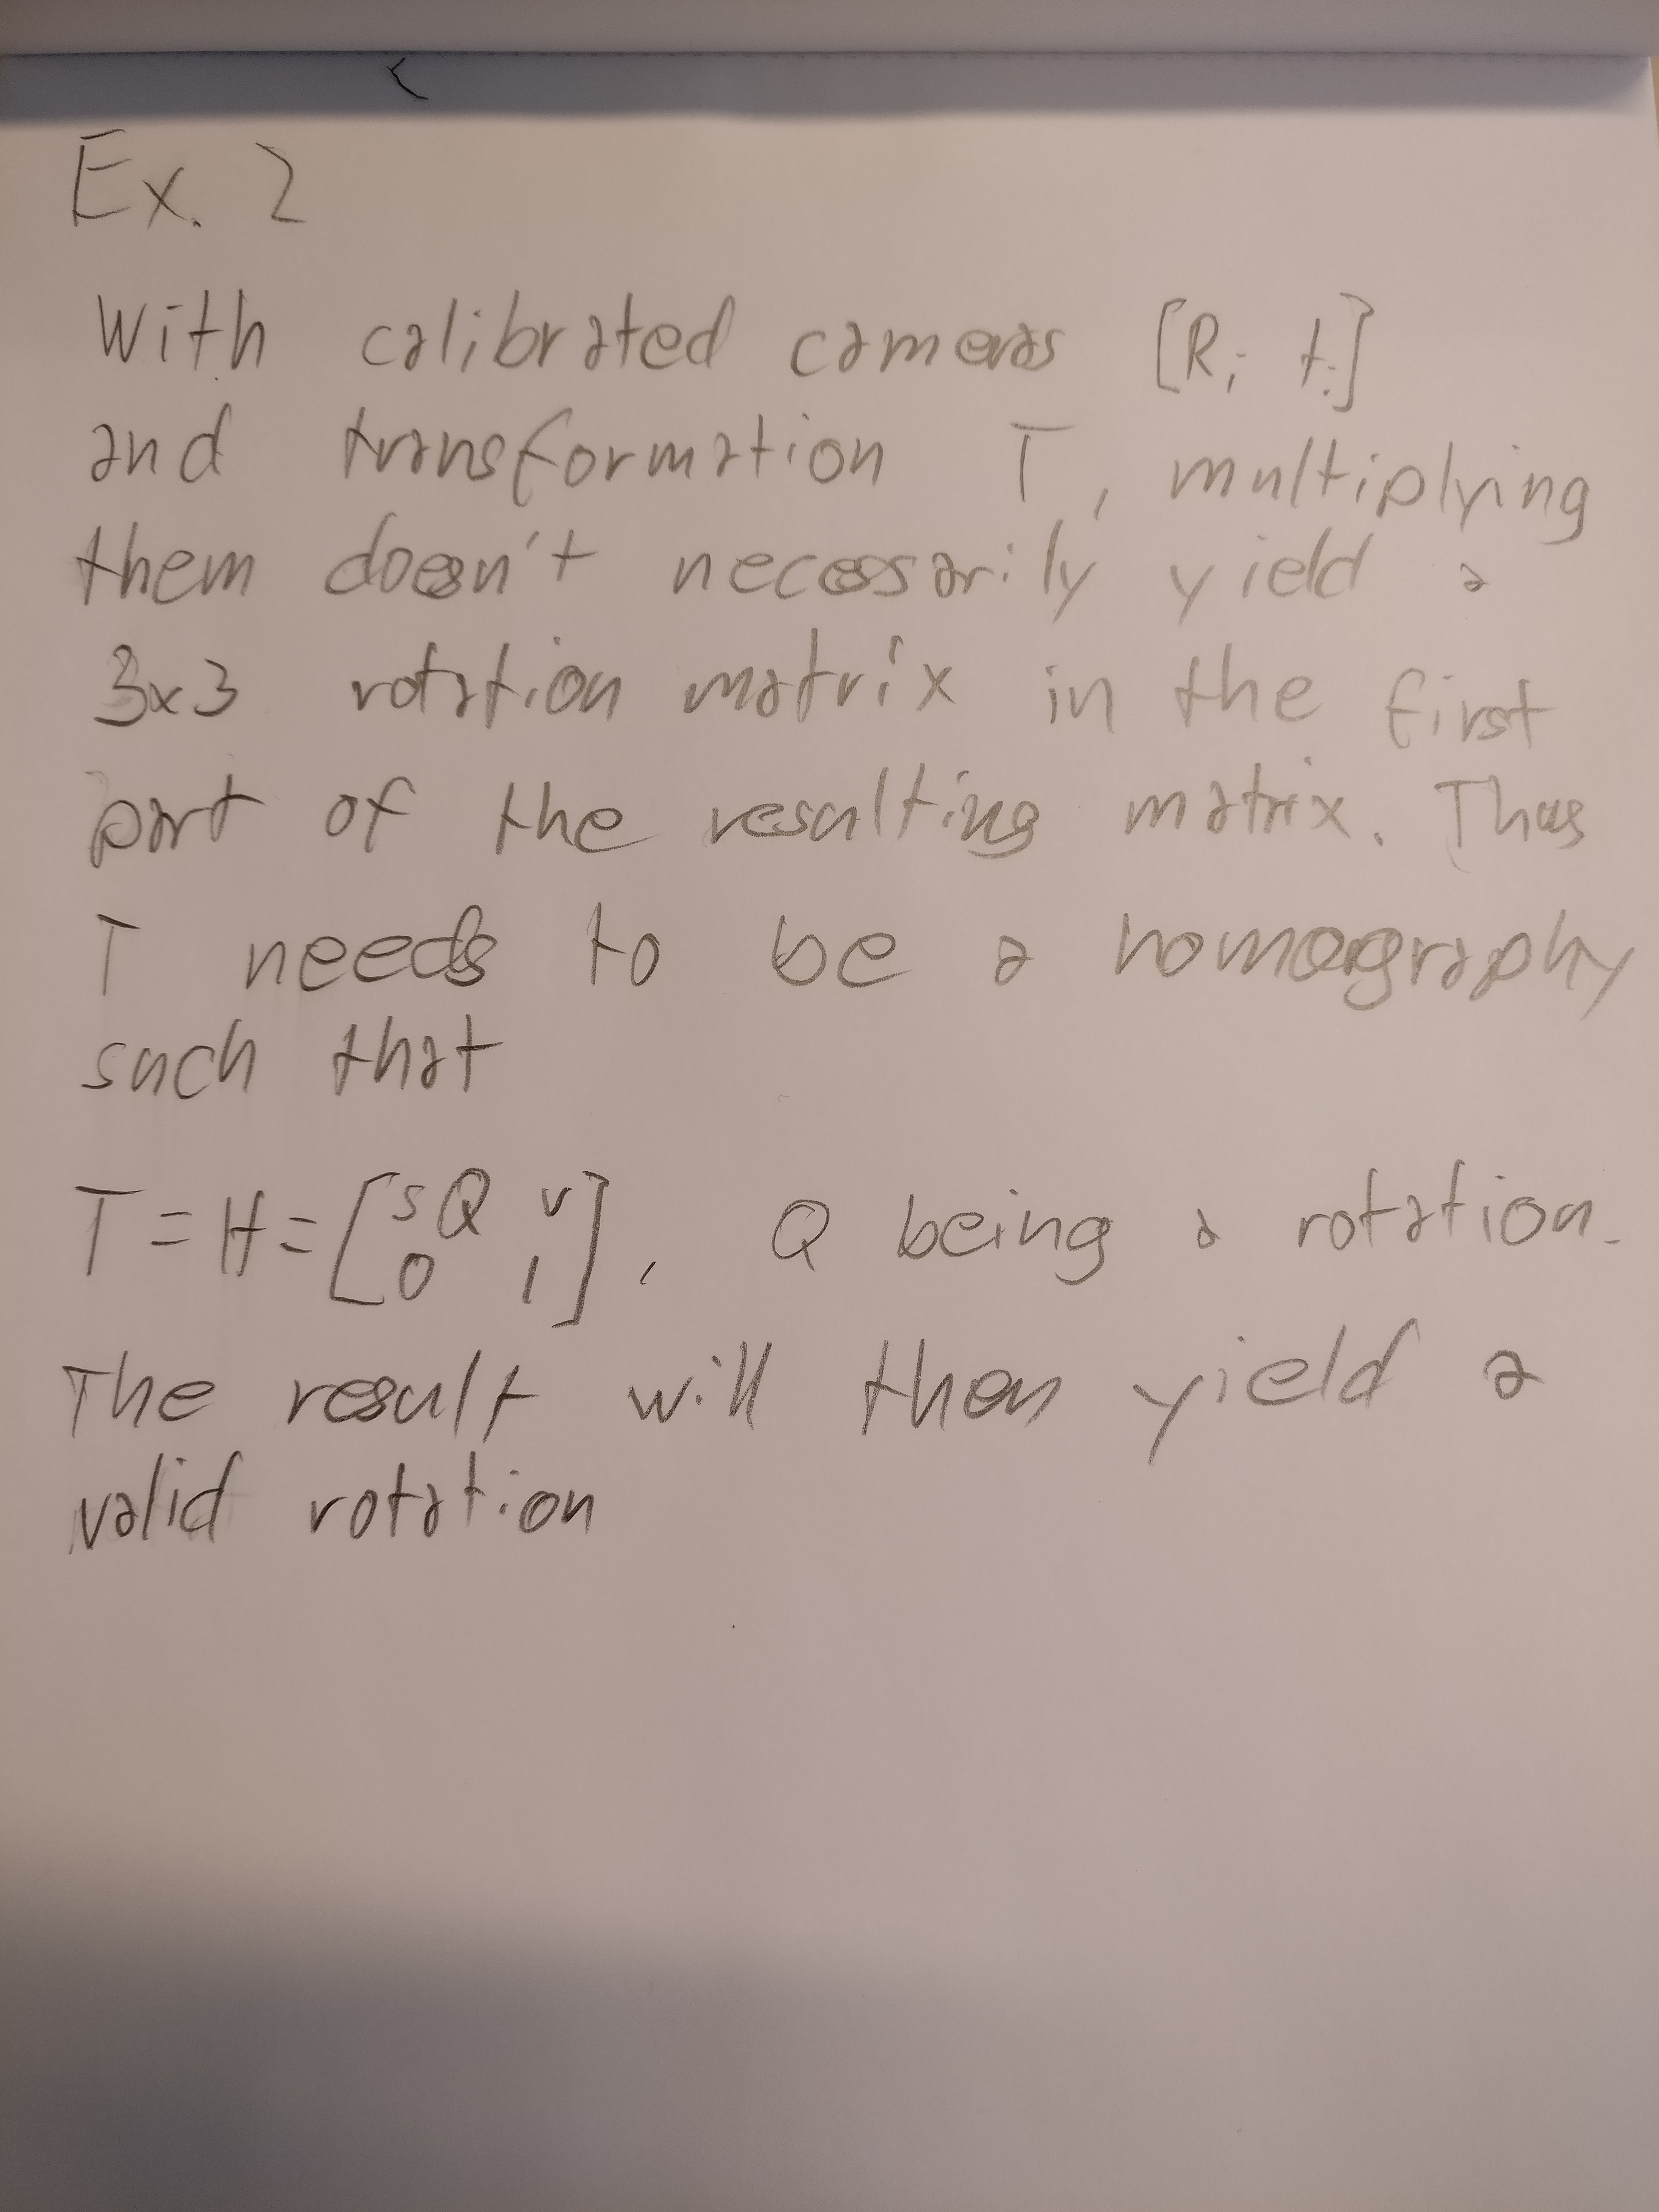 Ex. 2
With calibrated cameras [Ri ti]
and transformation T, multiplying
them doesn't necessarily yield a
3x3 rotation matrix in the first
part of the resulting matrix. Thus
T needs to be a homography
such that
T = H = [sQ v
0 1], Q being a rotation.
The result will then yield a
valid rotation